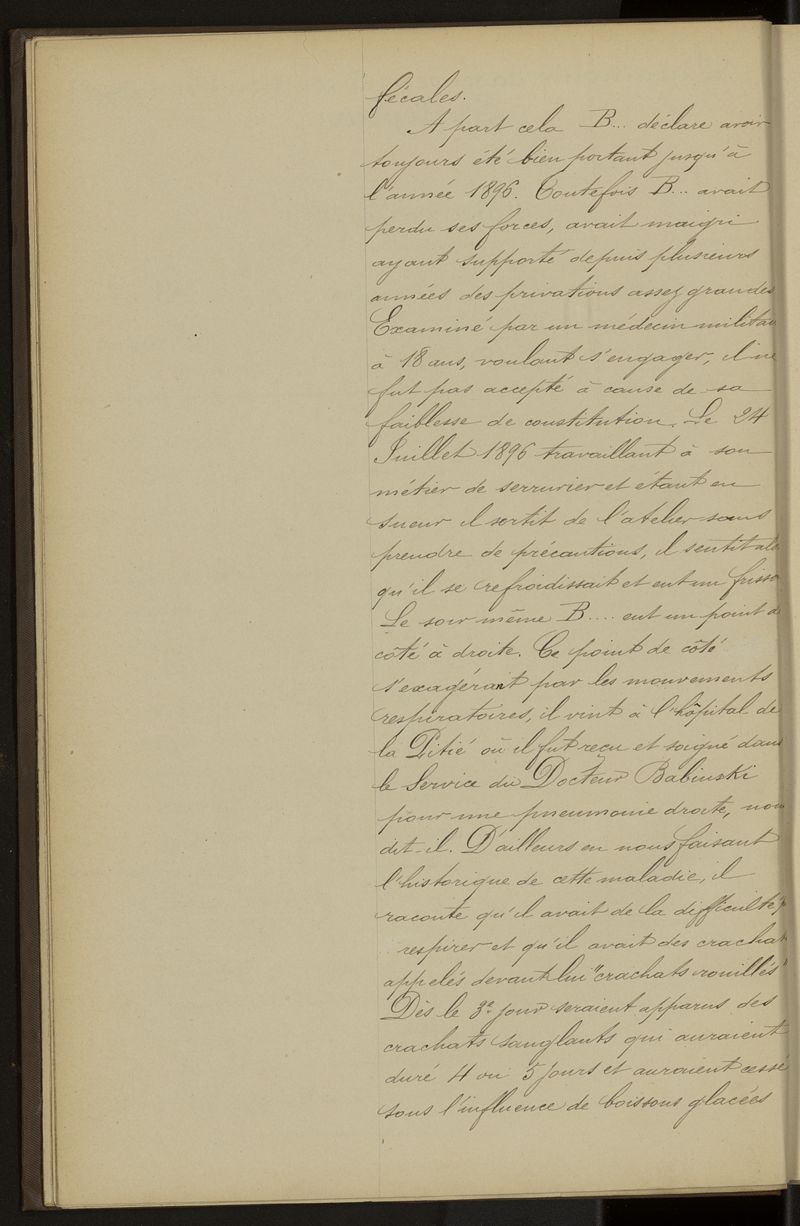 fécales.
A part cela B... déclare avoir
toujours été bien portant jusqu'à
l'année 1896. Toutefois B... avait
perdu ses forces, avait maigri
ayant supporté depuis plusieurs
années des privations assez grandes
Examiné par un médecin militai
à 18 ans, voulant s'engager, il ne
fut pas accepté à cause de sa
faiblesse de constitution. Le 24
Juillet 1896 travaillant à son
métier de serrurier et étant en
sueur il sortit de l'atelier sans
prendre de précautions, il sentit alo
qu'il se refroidissait et eut un frisso
Le soir même B.... eut un point d
côté à droite. Ce point de côté
s'exagérant par les mouvements
respiratoires, il vint à l'hôpital de
la Pitié où il fut reçu et soigné dans
le Service du Docteur Babinski
pour une pneumonie droite, nou
dit-il. D'ailleurs en nous faisant
l'historique de cette maladie, il
raconte qu'il avait de la difficulté
respirer et qu'il avait des cracha
appelés devant lui "crachats rouillés"
Dès le 3e jour seraient apparus des
crachats sanglants qui auraient
duré 4 ou 5 jours et auraient cessé
sous l'influence de boissons glacées